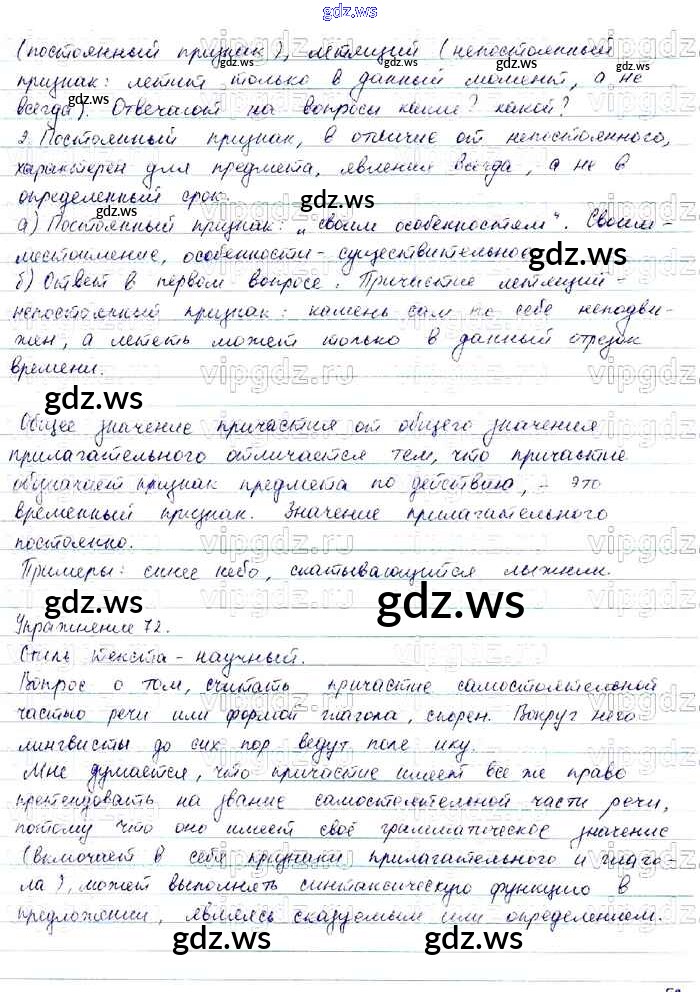 gdz.ws
(постоянный признак), летящий (непостоянный
признак: летит только в данный момент, а не
всегда). Отвечают на вопросы какие? какой?
2. Постоянный признак, в отличие от непостоянного,
характерен для предмета, явления всегда, а не в
определенный срок.
а) Постоянный признак: „своим особенностям". Своим-
местоимение, особенности - существительное
б) Ответ в первом вопросе. Причастие летящий -
непостоянный признак: камень сам по себе неподви-
жен, а лететь может только в данный отрезок
времени.
Общее значение причастия от общего значения
прилагательного отличается тем, что причастие
обозначает признак предмета по действию, - это
временный признак. Значение прилагательного
постоянно.
Примеры: синее небо, скатывающийся лыжник.
Упражнение 72.
Стиль текста - научный.
Вопрос о том, считать причастие самостоятельной
частью речи или формой глагола, спорен. Вокруг него
лингвисты до сих пор ведут полемику.
Мне думается, что причастие имеет все же право
претендовать на звание самостоятельной части речи,
потому что оно имеет своё грамматическое значение
(включает в себя признаки прилагательного и глаго-
ла), может выполнять синтаксическую функцию в
предложении, являясь сказуемым или определением.
gdz.ws